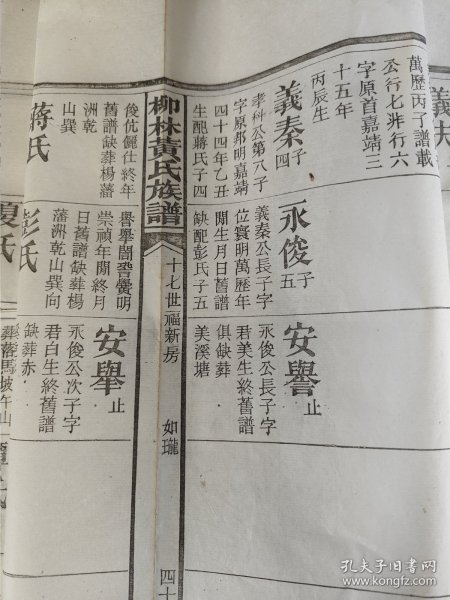 義夫
萬歷丙子譜載
公行七非行六
字原首嘉靖三
十五年
丙辰生
義秦四子
孝科公第八子
字原邦明嘉靖
四十四年乙丑
生配蔣氏子四
永俊五子
義秦公長子字
位寰明萬歷年
間生月日舊譜
缺配彭氏子五
安譽止
永俊公長子字
君美生終舊譜
俱缺葬
美溪塘
柳林黃氏族譜
十七世福新房
如瓏
四十
俊優儷仕終年
舊譜缺葬楊藩
洲乾
山巽
蔣氏
譽舉闇譽黌明
崇禎年間終月
日舊譜缺葬楊
藩洲乾山巽向
彭氏
安舉止
永俊公次子字
君白生終舊譜
缺葬赤
葬落馬坡午山
孔夫子旧书网
www.kongfz.com